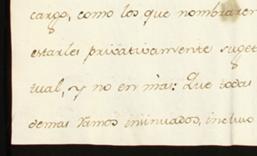 cargo, como los que nombraren
estarles privativamente suget
tual, y no en mas: Que todas
demas Ramos insinuados, incluso